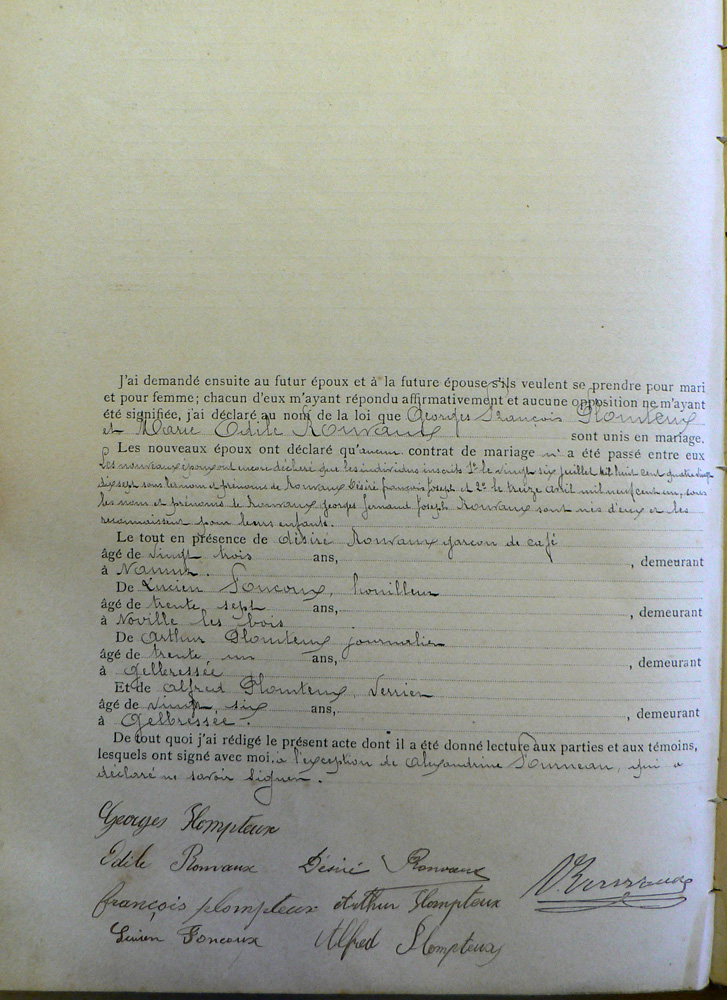 J'ai demandé ensuite au futur époux et à la future épouse s'ils veulent se prendre pour mari
et pour femme; chacun d'eux m'ayant répondu affirmativement et aucune opposition ne m'ayant
été signifiée, j'ai déclaré au nom de la loi que Georges François Plomteux
et Marie Edile Romvaux sont unis en mariage.
Les nouveaux époux ont déclaré qu'aucun contrat de mariage n'a été passé entre eux
Les nouveaux époux ont encore déclaré que les individus inscrits 1° le vingt six juillet mil huit cent quatre vingt
dix sept sous les nom et prénoms de Romvaux Désiré françois Joseph et 2° le treize avril mil neuf cent un, sous
les nom et prénoms de Romvaux georges fernand Joseph Romvaux sont nés d'eux et les
reconnaissent pour leurs enfants.
Le tout en présence de Désiré Romvaux garçon de café
âgé de vingt trois ans, , demeurant
à Namur.
De Lucien Foncoux, houilleur
âgé de trente sept ans, , demeurant
à Noville les bois
De Arthur Plomteux journalier
âgé de trente un ans, , demeurant
à Gelbressée
Et de Alfred Plomteux, Verrier
âgé de vingt six ans, , demeurant
à Gelbressée.
De tout quoi j'ai rédigé le présent acte dont il a été donné lecture aux parties et aux témoins,
lesquels ont signé avec moi. à l'exception de Alexandrine qui a
déclaré ne savoir signer.
Georges Plompteux
Edile Romvaux Désiré Romvaux
françois plompteux Arthur Plompteux
Lucien Foncoux Alfred Plompteux